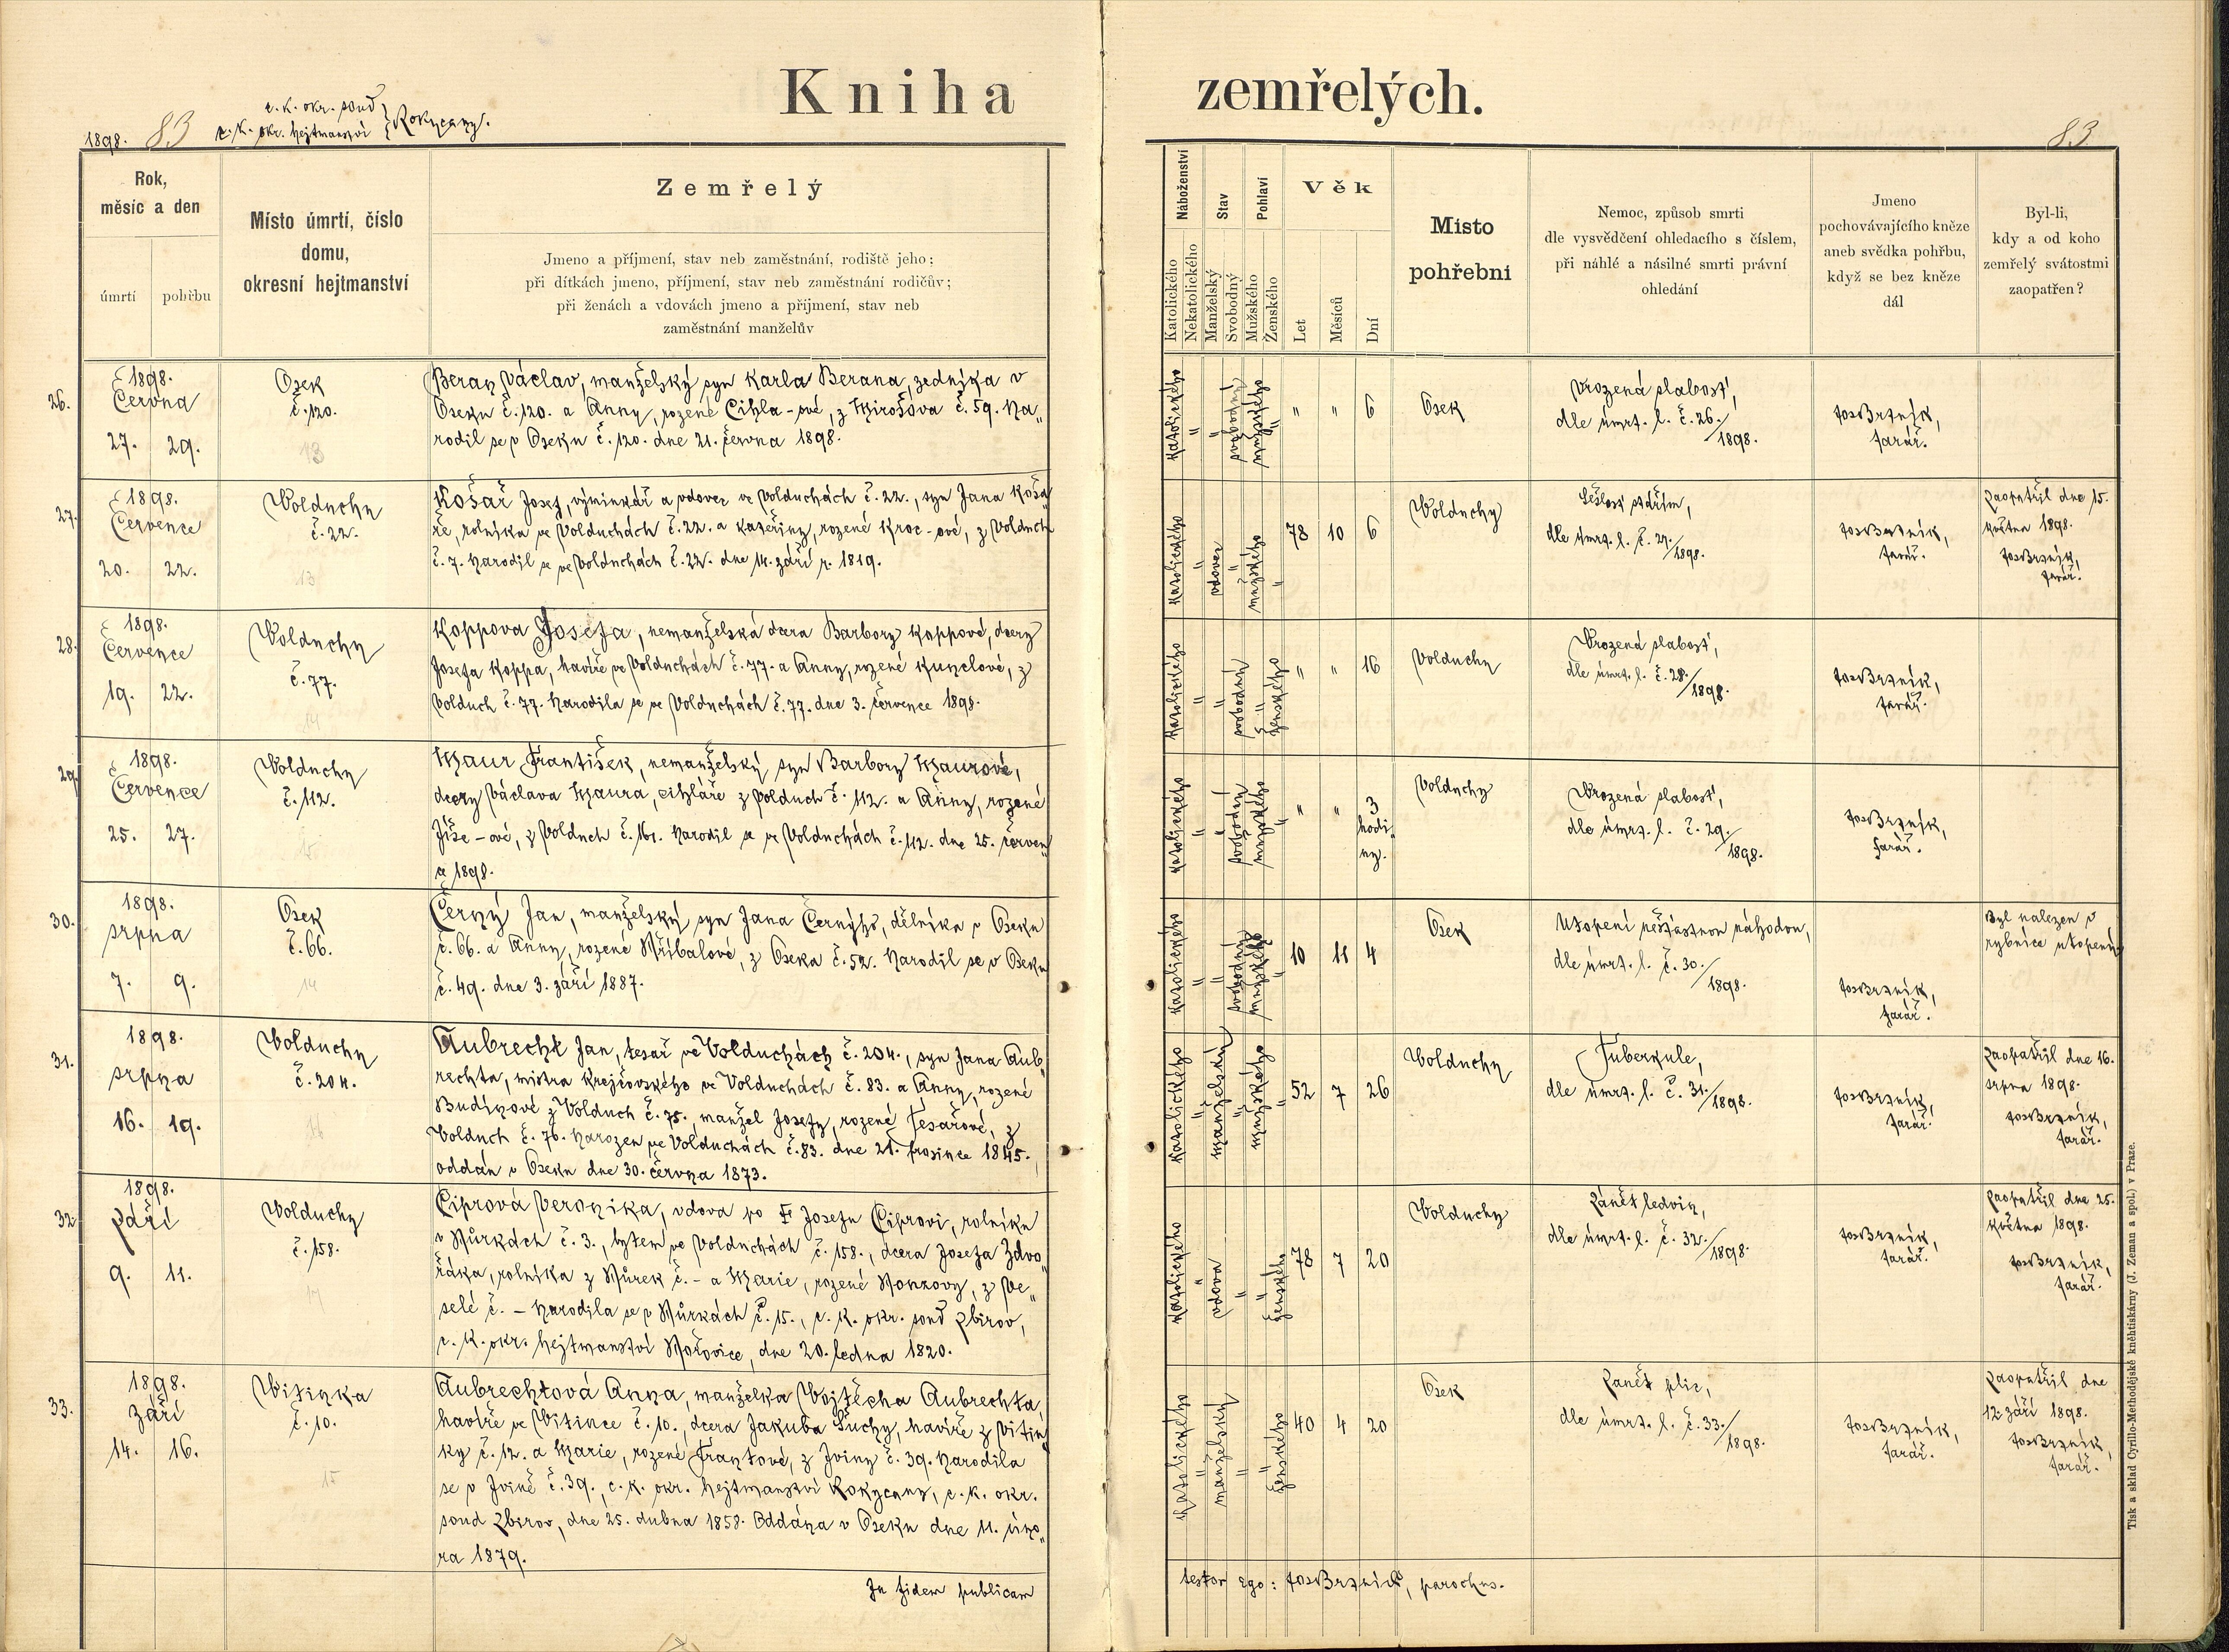 Kniha zemřelých.
1898. 83
c. k. okr. soud
c. k. okr. hejtmanství } Rokycany.
83
Rok,
měsíc a den
úmrtí
pohřbu
Místo úmrtí, číslo
domu,
okresní hejtmanství
Zemřelý
Jmeno a příjmení, stav neb zaměstnání, rodiště jeho;
při dítkách jmeno, příjmení, stav neb zaměstnání rodičův;
při ženách a vdovách jmeno a přijmení, stav neb
zaměstnání manželův
Náboženství
Katolického
Nekatolického
Stav
Manželský
Svobodný
Pohlaví
Mužského
Ženského
Věk
Let
Měsíců
Dní
Místo
pohřební
Nemoc, způsob smrti
dle vysvědčení ohledacího s číslem,
při náhlé a násilné smrti právní
ohledání
Jmeno
pochovávajícího kněze
aneb svědka pohřbu,
když se bez kněze
dál
Byl-li,
kdy a od koho
zemřelý svátostmi
zaopatřen?
26.
1898.
Června
27. 29.
Osek
č. 120.
13
Beran Václav, manželský syn Karla Berana, zedníka v
Oseku č. 120. a Anny, rozené Cihla-ové, z Mirošova č. 59. Na„
rodil se v Oseku č. 120. dne 21. června 1898.
katolického
svobodný
mužského
" " 6
Osek
Vrozená slabosť,
dle úmrt. l. č. 26./1898.
Jos Brzník,
farář.
27.
1898.
Července
20. 22.
Volduchy
č. 22.
13
Košař Josef, výminkář a vdovec ve Volduchách č. 22., syn Jana Koša„
ře, rolníka ve Volduchách č. 22. a Kateřiny, rozené Kroc-ové, z Volduch
č. 7. Narodil se ve Volduchách č. 22. dne 14. září r. 1819.
katolického
vdovec
mužského
78 10 6
Volduchy
Sešlosť stářím,
dle úmrt. l. č. 27./1898.
Jos Brzník,
farář.
Zaopatřil dne 15.
května 1898.
Jos Brzník,
farář.
28.
1898.
Července
19. 22.
Volduchy
č. 77.
14
Koppova Josefa, nemanželská dcera Barbory Koppové, dcery
Josefa Koppa, havíře ve Volduchách č. 77. a Anny, rozené Kunclové, z
Volduch č. 77. Narodila se ve Volduchách č. 77. dne 3. července 1898.
katolického
svobodný
ženského
" " 16
Volduchy
Vrozená slabosť,
dle úmrt. l. č. 28./1898.
Jos Brzník,
farář.
29.
1898.
Července
25. 27.
Volduchy
č. 112.
15
Maur František, nemanželský syn Barbory Maurové,
dcery Václava Maura, cihláře z Volduch č. 112. a Anny, rozené
Jíše-ové, z Volduch č. 161. Narodil se ve Volduchách č. 112. dne 25. červen„
ce 1898.
katolického
svobodný
mužského
" " 3
hodi„
ny.
Volduchy
Vrozená slabosť,
dle úmrt. l. č. 29./1898.
Jos Brzník,
farář.
30.
1898.
srpna
7. 9.
Osek
č. 66.
14
Černý Jan, manželský syn Jana Černýho, dělníka v Oseku
č. 66. a Anny, rozené Hříbalové, z Oseka č. 52. Narodil se v Oseku
č. 49. dne 3. září 1887.
katolického
svobodný
mužského
10 11 4
Osek
Utopení nešťastnou náhodou,
dle úmrt. l. č. 30./1898.
Jos Brzník,
farář.
Byl nalezen v
rybníce utopený.
31.
1898.
srpna
16. 19.
Volduchy
č. 204.
16
Aubrecht Jan, tesař ve Volduchách č. 204., syn Jana Aub„
rechta, mistra krejčovského ve Volduchách č. 83. a Anny, rozené
Budínové z Volduch č. 75., manžel Josefy, rozené Tesařové, z
Volduch č. 76. Narozen ve Volduchách č. 83. dne 21. prosince 1845.
oddán v Oseku dne 30. června 1873.
katolického
manželský
mužského
52 7 26
Volduchy
Tuberkule,
dle úmrt. l. č. 31./1898.
Jos Brzník,
farář.
Zaopatřil dne 16.
srpna 1898.
Jos Brzník,
farář.
32.
1898.
Září
9. 11.
Volduchy
č. 158.
17
Ciprová Veronika, vdova po † Josefu Ciprovi, rolníku
v Můrkách č. 3., bytem ve Volduchách č. 158., dcera Josefa Zdvo„
řáka, rolníka z Můrek č. - a Marie, rozené Honzovy, z Ve„
selé č. - Narodila se v Můrkách č. 15., c. k. okr. soud Zbirov,
c. k. okr. hejtmanství Hořovice, dne 20. ledna 1820.
katolického
vdova
ženského
78 7 20
Volduchy
Zánět ledvin,
dle úmrt. l. č. 32./1898.
Jos Brzník,
farář.
Zaopatřil dne 25.
května 1898.
Jos Brzník,
farář.
33.
1898.
září
14. 16.
Vitinka
č. 10.
15
Aubrechtová Anna, manželka Vojtěcha Aubrechta,
havíře ve Vitince č. 10., dcera Jakuba Suchy, havíře z Vitin„
ky č. 12. a Marie, rozené Frantové, z Jviny č. 39. Narodila
se v Jvině č. 39., c. k. okr. hejtmanství Rokycany, c. k. okr.
soud Zbirov, dne 25. dubna 1858. Oddána v Oseku dne 11. úno„
ra 1879.
katolického
manželský
ženského
40 4 20
Osek
Zanět plic,
dle úmrt. l. č. 33./1898.
Jos Brzník,
farář.
Zaopatřil dne
12 září 1898.
Jos Brzník,
farář.
In fidem publicam testor ego: Jos Brzník, parochus.
Tisk a sklad Cyrillo-Methodějské kněhtiskárny (J. Zeman a spol.) v Praze.